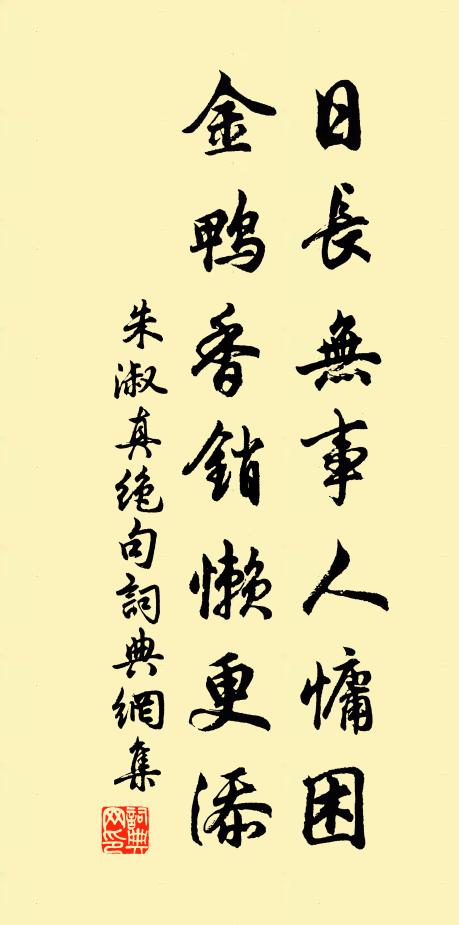 日長無事人慵困
金鴨香銷懶更添
朱淑真絶句詞典網集
詞典網印